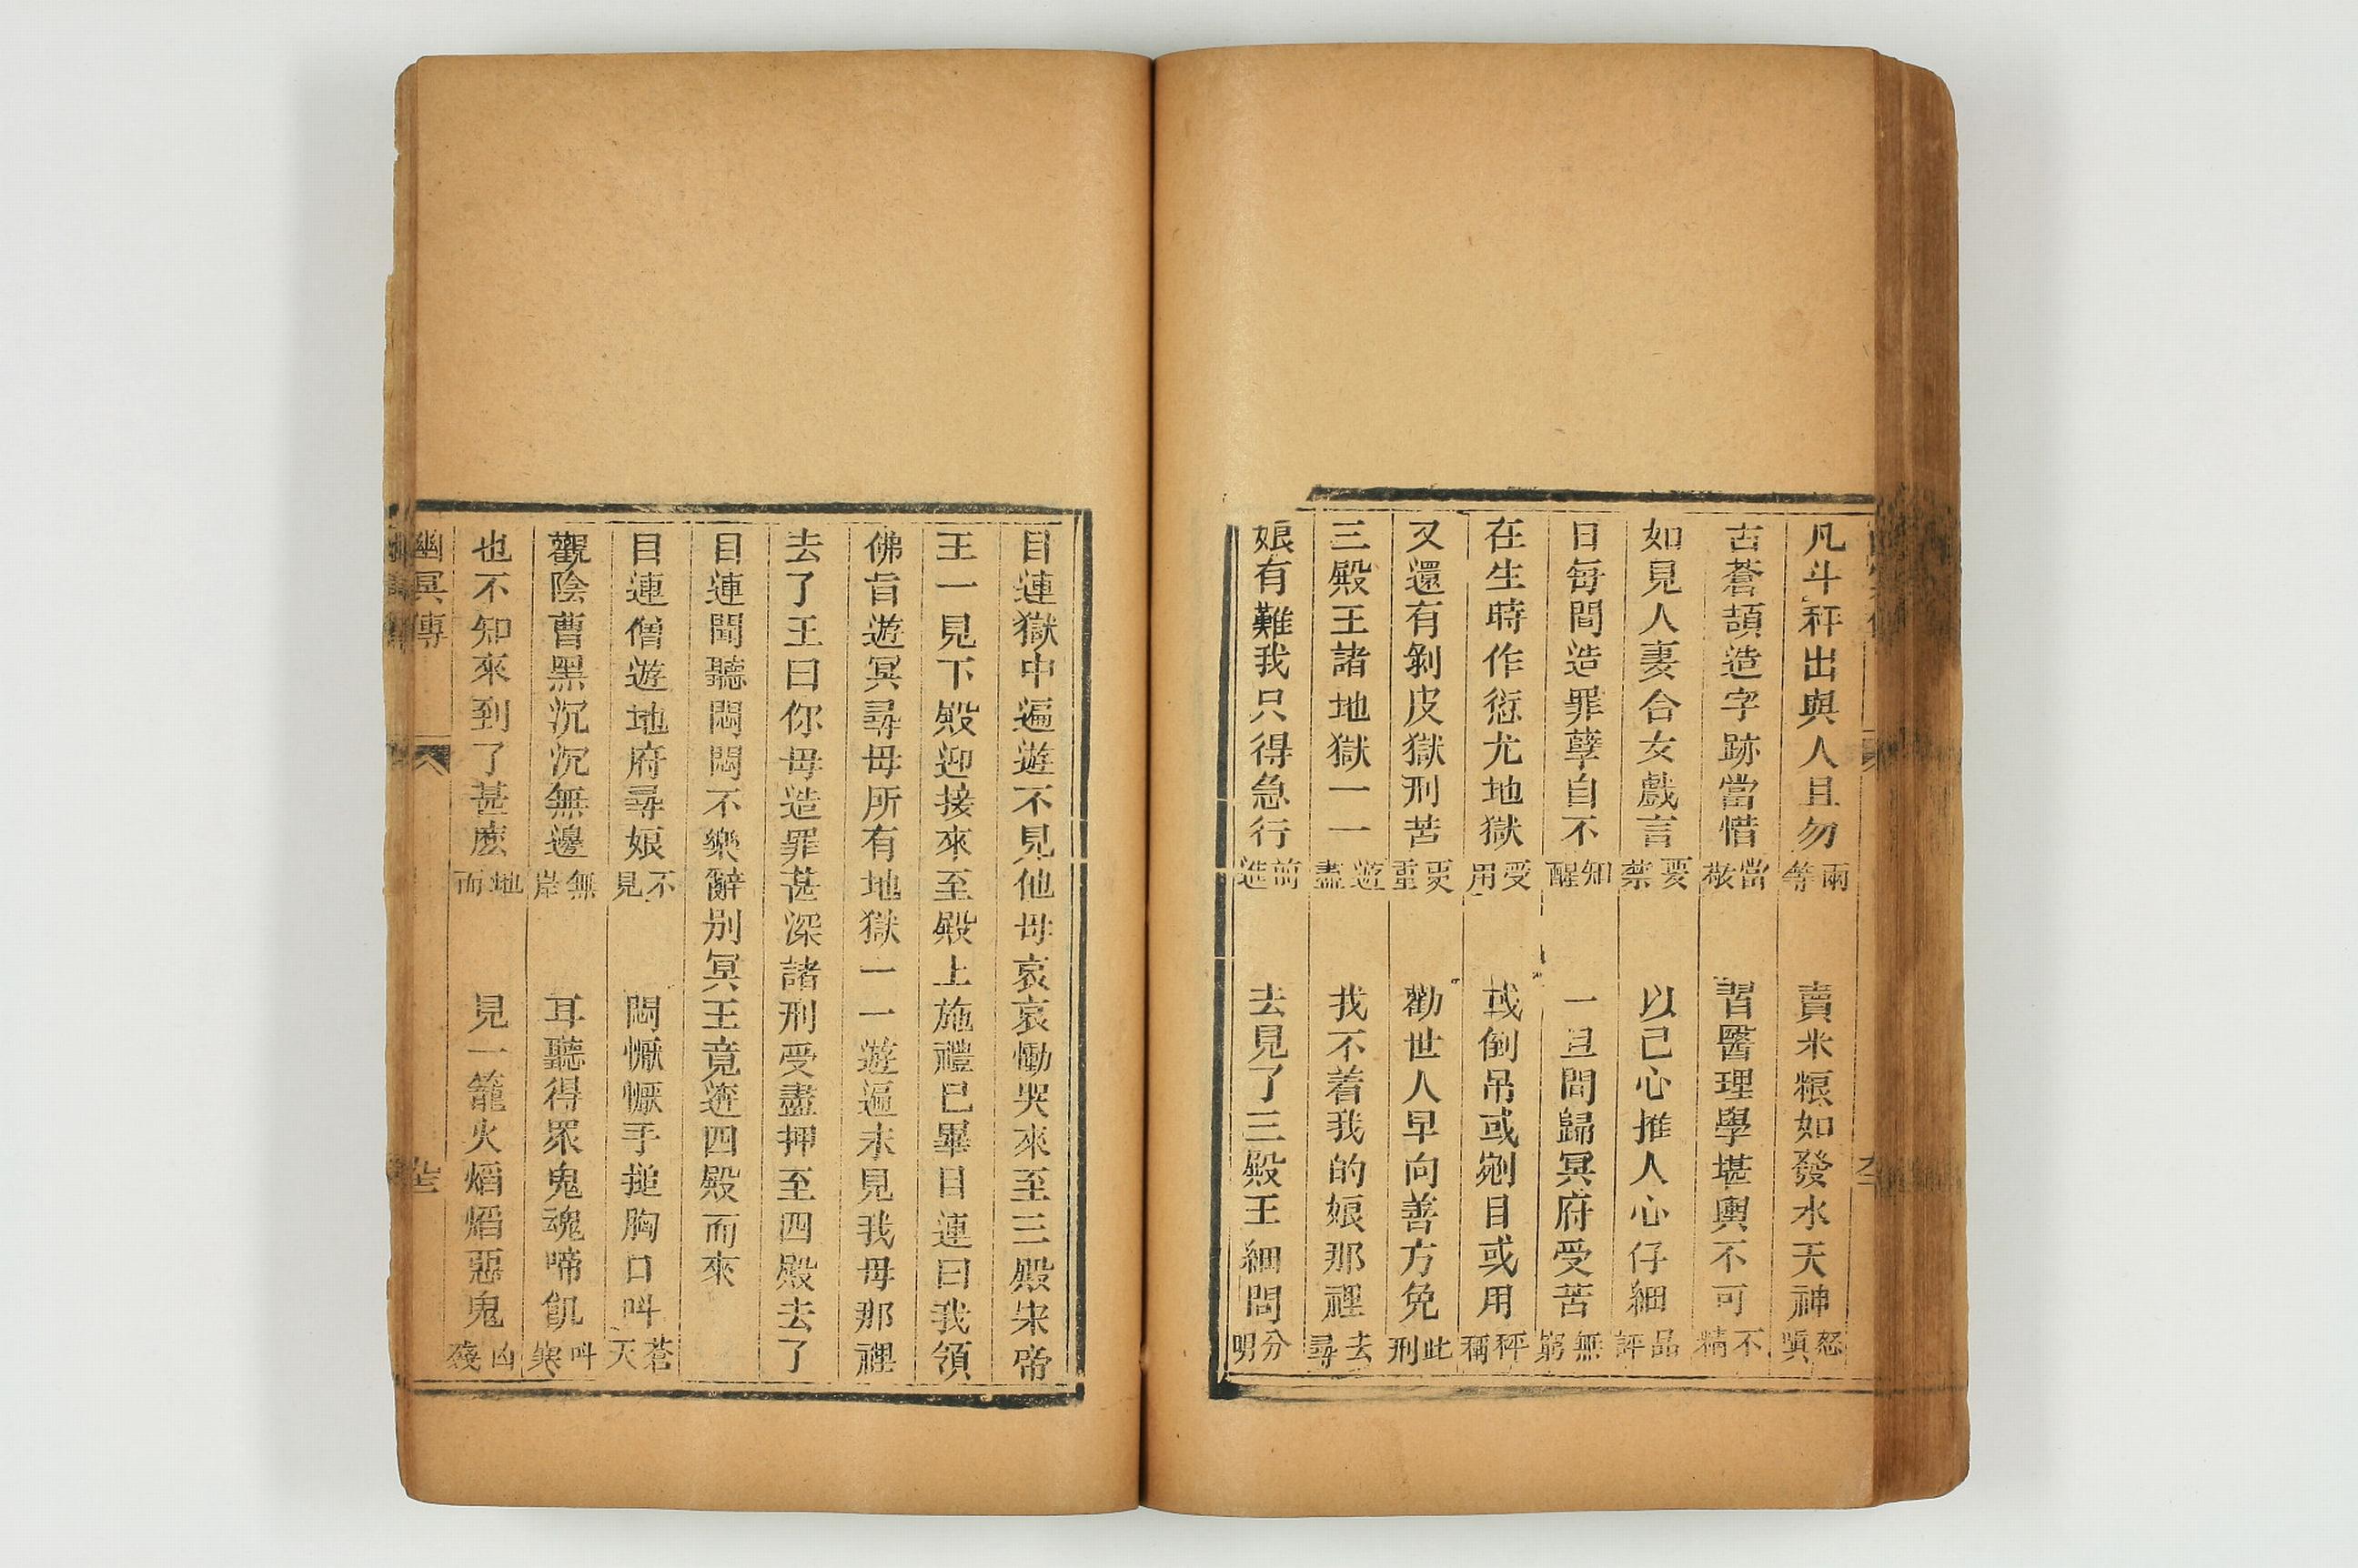 凡斗秤出與人且勿兩等　賣米粮如發水天神怒嗔
古蒼頡造字跡當惜當敬　習醫理學堪輿不可不精
如見人妻合女戲言要禁　以己心推人心仔細品評
日每間造罪孽自不知醒　一旦間歸冥府受苦無窮
在生時作愆尤地獄受用　或倒吊或剜目或用秤稱
又還有剝皮獄刑苦更重　勸世人早向善方免此刑
三殿王諸地獄一一遊盡　我不着我的娘那裡去尋
娘有難我只得急行前進　去見了三殿王細問分明
目連獄中遍遊不見他母哀哀慟哭來至三殿宋帝
王一見下殿迎接來至殿上施禮已畢目連曰我領
佛旨遊冥尋母所有地獄一一遊遍未見我母那裡
去了王曰你母造罪甚深諸刑受盡押至四殿去了
目連聞聽悶悶不樂辭別冥王竟迸四殿而來
目連僧遊地府尋娘不見　悶懨懨手搥胸口叫蒼天
觀陰曹黑沉沉無邊無岸　耳聽得眾鬼魂啼飢叫寒
也不知來到了甚麽地面　見一籠火熖熖惡鬼凶殘
幽冥傳